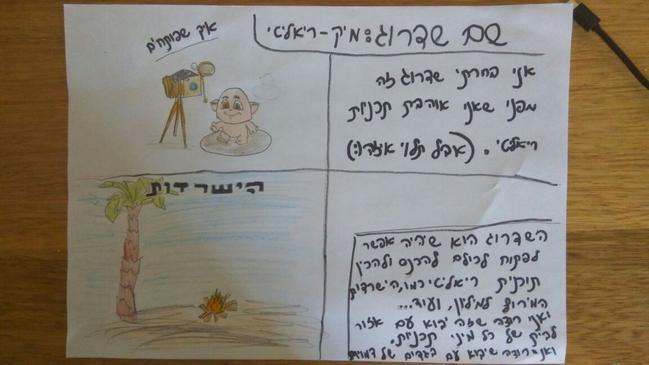 שם שדרוג: מיק-ריאליטי
איך שפותחים
אני בחרתי שדרוג זה
מפני שאני אוהבת תכניות
ריאליטי. (אבל תלוי איזה:)
הישרדות
השדרוג הוא שיהיה אפשר
לפתוח לכולם להכנס ולהכין
תוכנית ריאליטי כמו, הישרדות
המירוץ למליון, ועוד...
ואני רוצה שזה יבוא עם אזור
לבייק של כל מיני תכניות.
ואני רוצה שיבוא עם בגדים של דמויות